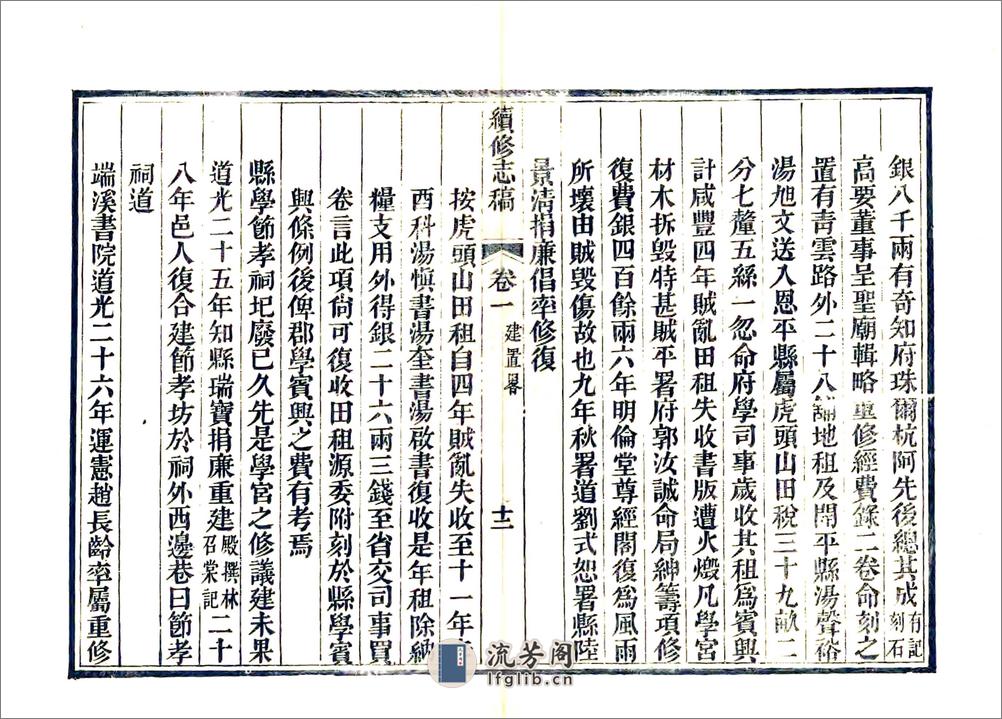 銀八千兩有奇知府珠爾杭阿先後總其成有記刻石
高要董事呈聖廟輯略重修經費錄二卷命刻之
置有靑雲路外二十八舖地租及開平縣湯聲裕
湯旭文送入恩平縣屬虎頭山田稅三十九畝二
分七釐五絲一忽命府學司事歲收其租爲賓興
計咸豐四年賊亂田租失收書版遭火燬凡學宮
材木拆毀特甚賊平署府郭汝誠命局紳籌項修
復費銀四百餘兩六年明倫堂尊經閣復爲風雨
所壞由賊毀傷故也九年秋署道劉式恕署縣陸
景淸捐廉倡率修復
續修志稿 卷一 建置畧 十二
按虎頭山田租自四年賊亂失收至十一年
西科湯愼書湯奎書湯啟書復收是年租除納
糧支用外得銀二十六兩三錢至省交司事買
卷言此項尙可復收田租源委附刻於縣學賓
興條例後俾郡學賓興之費有考焉
縣學節孝祠圮廢已久先是學宮之修議建未果
道光二十五年知縣瑞寶捐廉重建殿撰林召棠記二十
八年邑人復合建節孝坊於祠外西邊巷曰節孝
祠道
端溪書院道光二十六年運憲趙長齡率屬重修
流芳阁
lfglib.cn